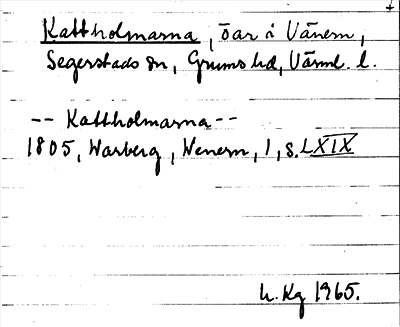 Kattholmarna, öar i Vänern,
Segerstads sn, Grums hd, Värml. l.
-- Kattholmarna --
1805, Warberg, Wenern, 1, s. LXIX
h. Kg 1965.